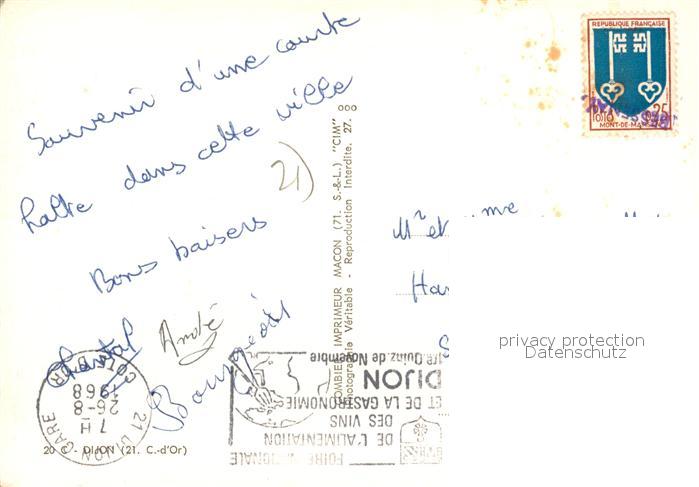 Souvenir d'une courte
halte dans cette ville
Bons baisers
Chantal André
Bourgeois
21)
20 C - DIJON (21. C.-d'Or)
COMBIER IMPRIMEUR MACON (71. S.-&-L.) "CIM"
Photographie Véritable - Reproduction Interdite. 27.
REPUBLIQUE FRANÇAISE
0,25
MONT-DE-MARSAN
Mr et Mme
privacy protection
Datenschutz
21 DIJON GARE
7 H
26-8
1968
COTE D'OR
FOIRE NATIONALE
DE L'ALIMENTATION
DES VINS
ET DE LA GASTRONOMIE
DIJON
1re Quinz. de Novembre